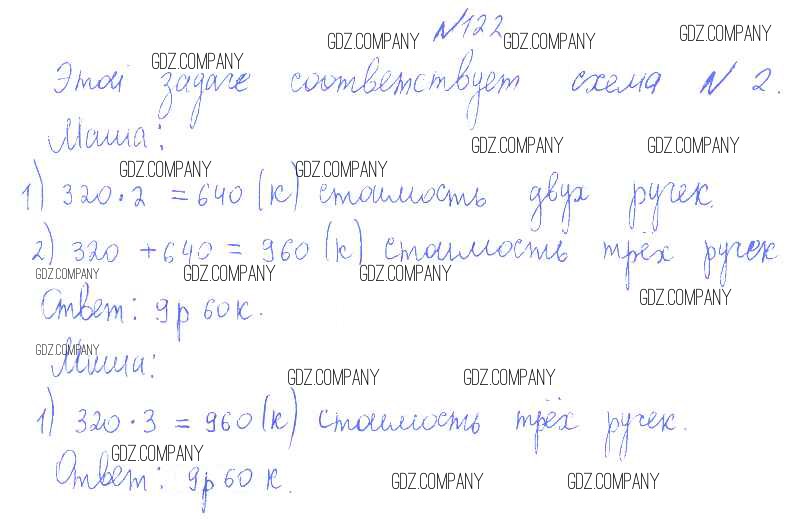 №122
Этой задаче соответствует схема № 2.
Маша:
1) 320·2 = 640 (к) стоимость двух ручек.
2) 320 + 640 = 960 (к) стоимость трёх ручек
Ответ: 9р 60к.
Миша:
1) 320·3 = 960 (к) стоимость трёх ручек.
Ответ: 9р 60 к.
GDZ.COMPANY GDZ.COMPANY GDZ.COMPANY
GDZ.COMPANY
GDZ.COMPANY GDZ.COMPANY
GDZ.COMPANY GDZ.COMPANY
GDZ.COMPANY GDZ.COMPANY GDZ.COMPANY
GDZ.COMPANY
GDZ.COMPANY
GDZ.COMPANY GDZ.COMPANY
GDZ.COMPANY
GDZ.COMPANY GDZ.COMPANY